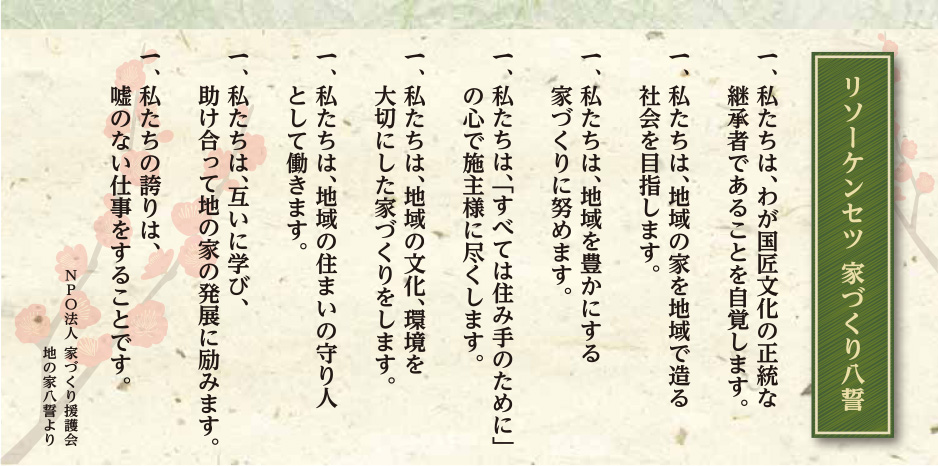 リソーケンセツ 家づくり八誓
一、私たちは、わが国匠文化の正統な
継承者であることを自覚します。
一、私たちは、地域の家を地域で造る
社会を目指します。
一、私たちは、地域を豊かにする
家づくりに努めます。
一、私たちは、「すべては住み手のために」
の心で施主様に尽くします。
一、私たちは、地域の文化、環境を
大切にした家づくりをします。
一、私たちは、地域の住まいの守り人
として働きます。
一、私たちは、互いに学び、
助け合って地の家の発展に励みます。
一、私たちの誇りは、
嘘のない仕事をすることです。
NPO法人 家づくり援護会
地の家八誓より